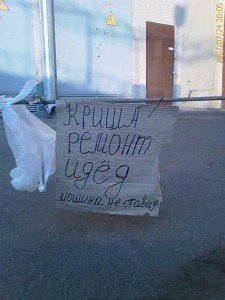 КРИША!
РЕМОНТ
ИДЁД
мошина не ставит
2007/07/24 20:05